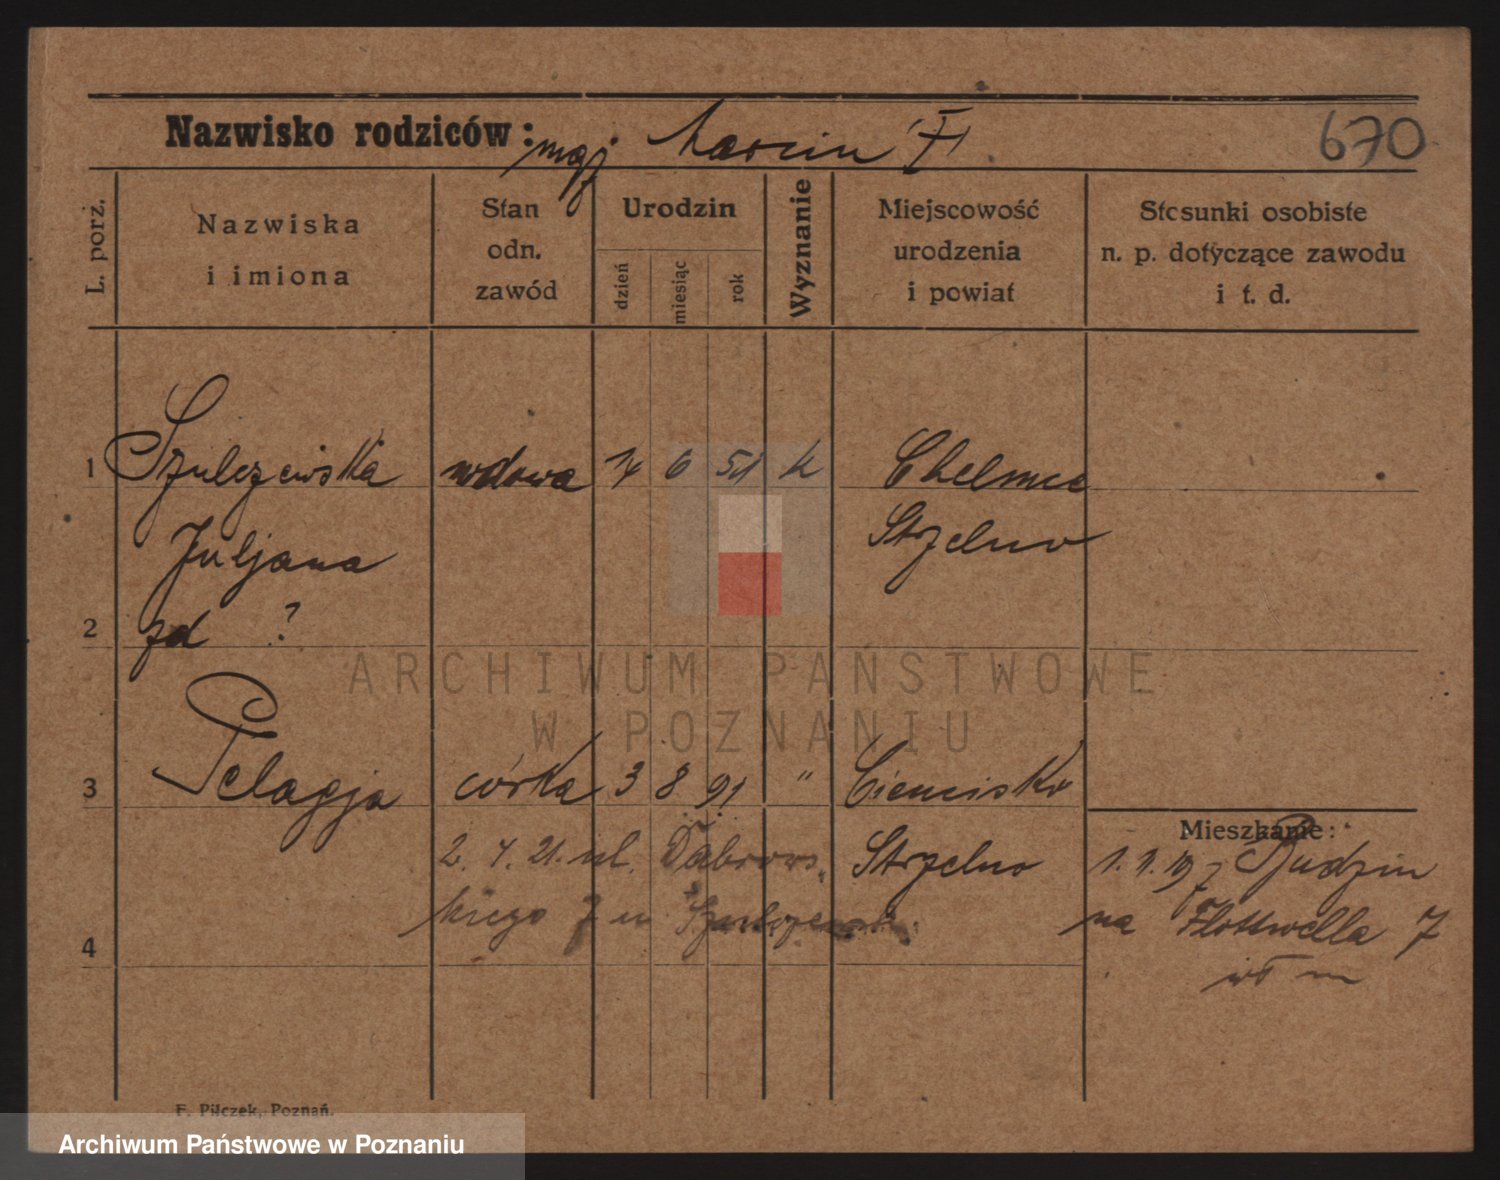 Nazwisko rodziców: mąż Marcin
670
L. porz.
Nazwiska
i imiona
Stan
odn.
zawód
Urodzin
dzień
miesiąc
rok
Wyznanie
Miejscowość
urodzenia
i powiat
Stosunki osobiste
n. p. dotyczące zawodu
i t. d.
1 Szulczewska wdowa 14 6 51 k Chelmce
Juljana Strzelno
2 zd ?
3 Pelagja córka 3 8 91 " Ciencisko
Mieszkanie:
2. 4. 21. ul. Dąbrows Strzelno 1. 1. 19 z Budzin
kiego 7 m Szulczewsk na Flottwella 7
4
F. Pilczek, Poznań.
ARCHIWUM PAŃSTWOWE
W POZNANIU
Archiwum Państwowe w Poznaniu